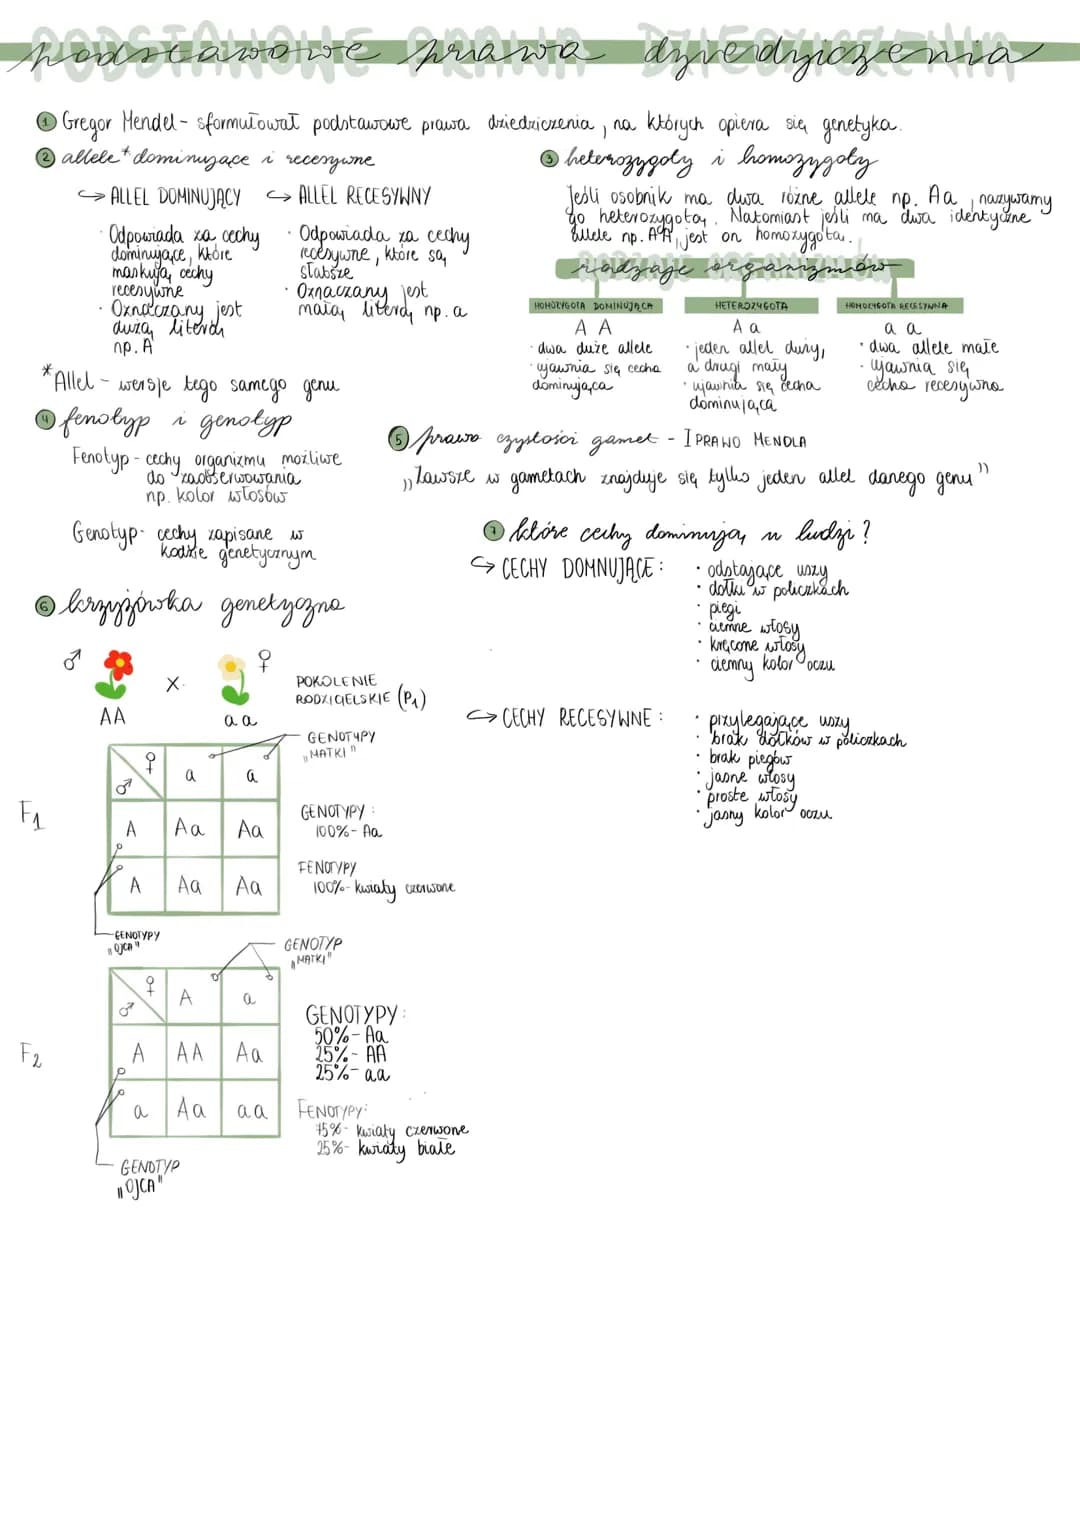 podstawowe prawa dziedziczenia
1 Gregor Mendel - sformułował podstawowe prawa dziedziczenia, na których opiera się genetyka.
2 allele* dominujące i recesywne
↪ ALLEL DOMINUJĄCY
· Odpowiada za cechy
dominujące, które
maskują cechy
recesywne
· Oznaczany jest
dużą literą
np. A
↪ ALLEL RECESYWNY
· Odpowiada za cechy
recesywne, które są
słabsze
· Oznaczany jest
małą literą np. a
*Allel - wersje tego samego genu
3 heterozygoty i homozygoty
Jeśli osobnik ma dwa różne allele np. Aa, nazywamy
go heterozygotą. Natomiast jeśli ma dwa identyczne
allele np. AA, jest on homozygotą.
RODZAJE ORGANIZMÓW
rodzaje organizmów
HOMOZYGOTA DOMINUJĄCA
A A
· dwa duże allele
· ujawnia się cecha
dominująca
HETEROZYGOTA
A a
· jeden allel duży,
a drugi mały
· ujawnia się cecha
dominująca
HOMOZYGOTA RECESYWNA
a a
· dwa allele małe
· ujawnia się
cecha recesywna
4 fenotyp i genotyp
Fenotyp - cechy organizmu możliwe
do zaobserwowania
np. kolor włosów
Genotyp - cechy zapisane w
kodzie genetycznym
5 prawo czystości gamet - I PRAWO MENDLA
„Zawsze w gametach znajduje się tylko jeden allel danego genu”
6 krzyżówka genetyczna
♂ X ♀
AA aa
POKOLENIE
RODZICIELSKIE (P1)
GENOTYPY
„MATKI”
F1
♂ ♀ a a
A Aa Aa
A Aa Aa
GENOTYPY:
100% - Aa
FENOTYPY
100% - kwiaty czerwone
GENOTYPY
„OJCA”
GENOTYP
„MATKI”
F2
♂ ♀ A a
A AA Aa
a Aa aa
GENOTYPY:
50% - Aa
25% - AA
25% - aa
FENOTYPY:
75% - kwiaty czerwone
25% - kwiaty białe
GENOTYP
„OJCA”
7 które cechy dominują u ludzi?
↪ CECHY DOMNUJĄCE:
· odstające uszy
· dołki w policzkach
· piegi
· ciemne włosy
· kręcone włosy
· ciemny kolor oczu
↪ CECHY RECESYWNE:
· przylegające uszy
· brak dołków w policzkach
· brak piegów
· jasne włosy
· proste włosy
· jasny kolor oczu